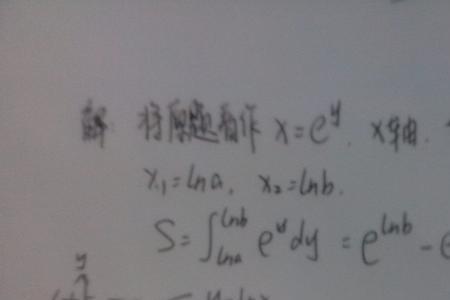 解: 将原题看作 x=e^y. x轴.
x₁=lna, x₂=lnb.
S=∫_{lna}^{lnb} e^y dy = e^{lnb} -
y